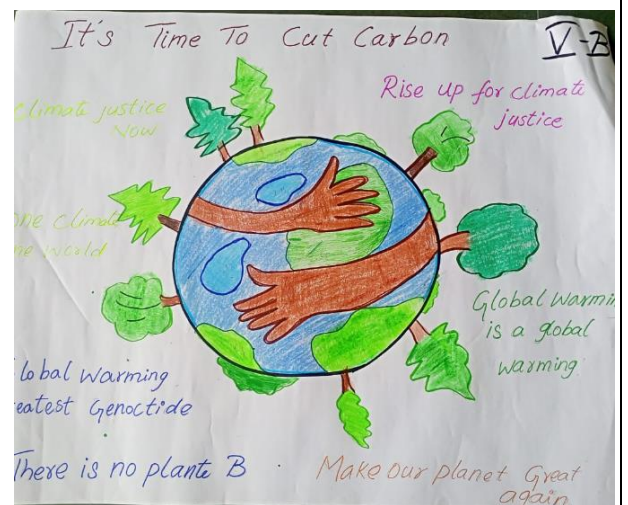 It's Time To Cut Carbon
V-B
Climate justice
Now
Rise up for climate
justice
one climate
one world
Global warmin
is a global
warming
lobal warming
eatest Genoctide
There is no plante B
Make our planet Great
again